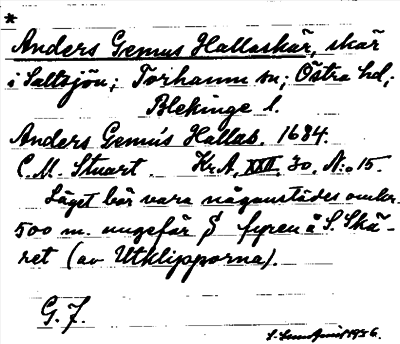 *
Anders Gemus Hallaskär, skär
i Saltsjön; Torhamn sn; Östra hd;
Blekinge l.
Anders Gemus Hallas. 1684.
C. M. Stuart. Kr.A. XXII, 30, N:o 15.
Läget bör vara någonstädes omkr.
500 m. ungefär S fyren å S. Skä-
ret (av Utklipporna).
G. F.
1956.